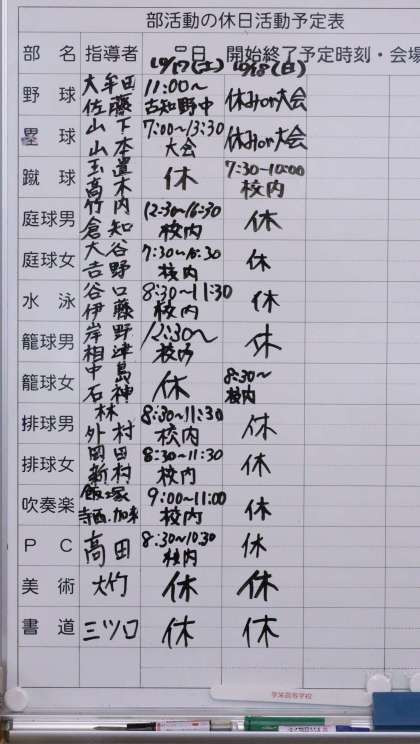 部活動の休日活動予定表
部 名 指導者 月日 開始終了予定時刻・会場
10/17(土) 10/18(日)
野 球 大牟田 佐藤 11:00~ 古知野中 休みor大会
塁 球 山下 山本 7:00~13:30 大会 休みor大会
蹴 球 玉置 高木 休 7:30~10:00 校内
庭球男 竹内 倉知 12:30~16:30 校内 休
庭球女 大谷 吉野 7:30~10:30 校内 休
水 泳 谷口 伊藤 8:30~11:30 校内 休
籠球男 岸野 相津 12:30~ 校内 休
籠球女 中島 石神 休 8:30~ 校内
排球男 林 外村 8:30~11:30 校内 休
排球女 岡田 新村 8:30~11:30 校内 休
吹奏楽 飯塚 寺西・加来 9:00~11:00 校内 休
P C 高田 8:30~10:30 校内 休
美 術 大竹 休 休
書 道 三ツ口 休 休